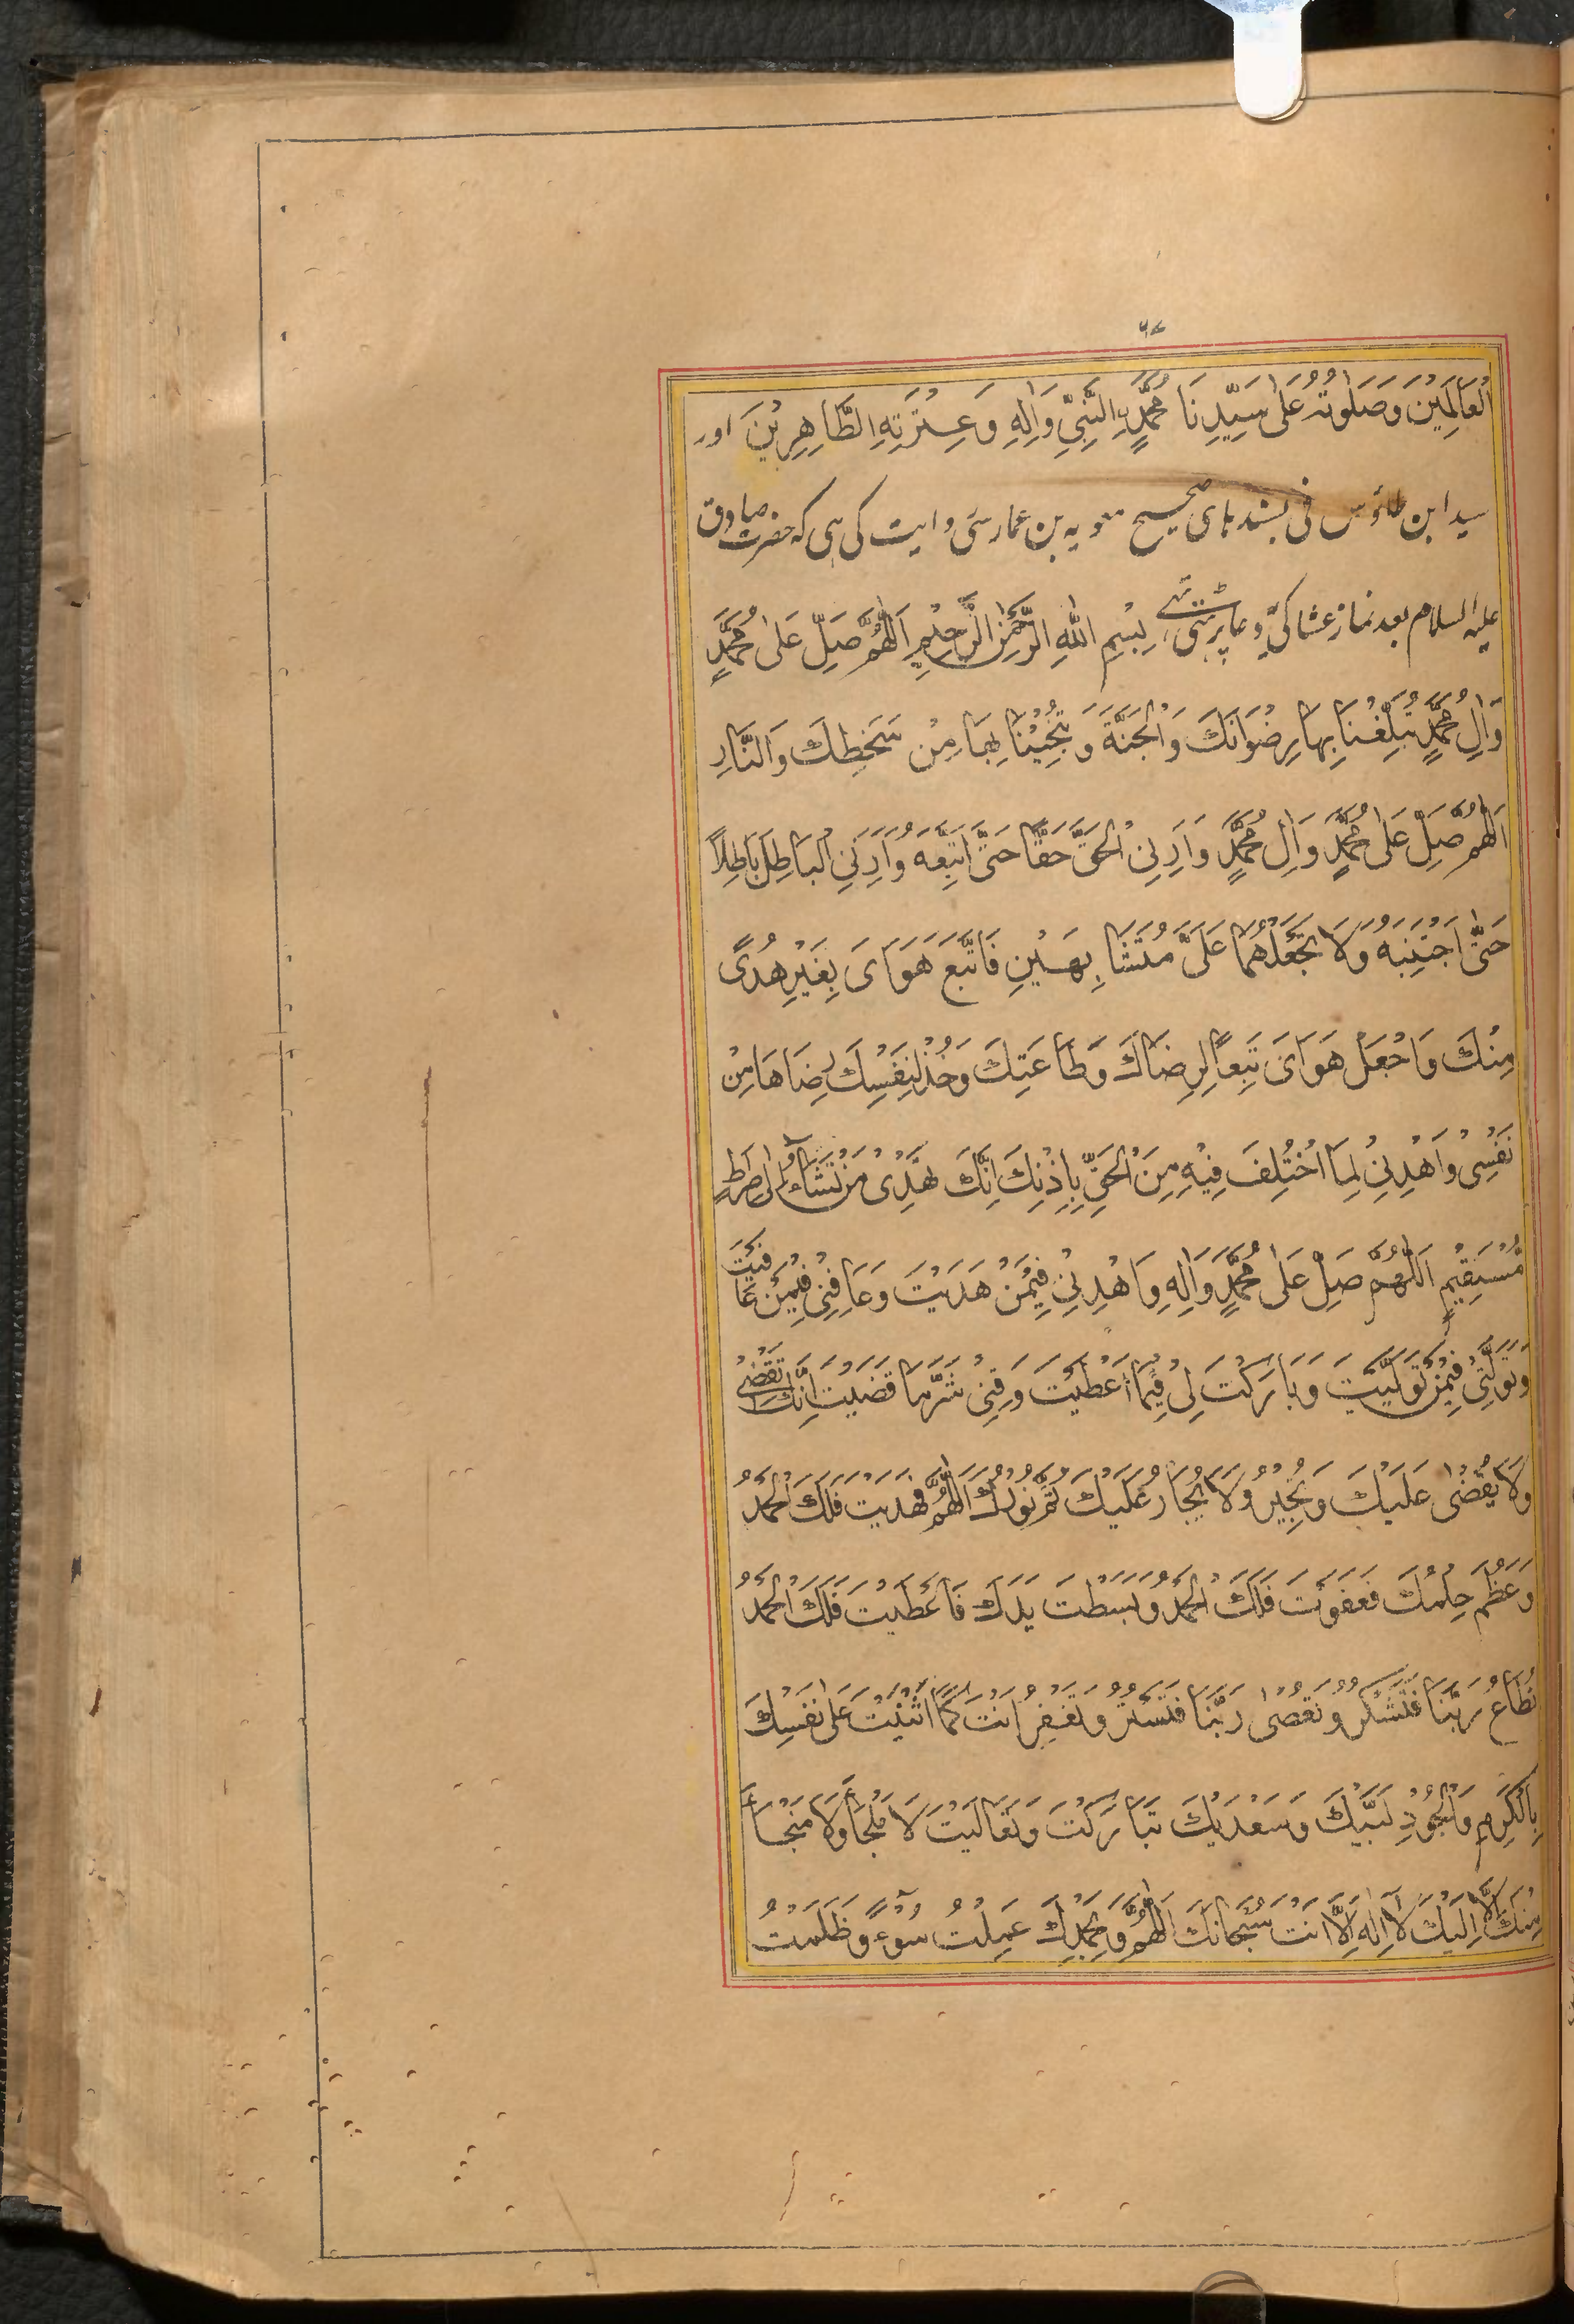 ۶۷
الْعَالَمِيْنَ وَصَلَوٰتُهُ عَلٰى سَيِّدِنَا مُحَمَّدٍ النَّبِيِّ وَاٰلِهِ وَعِتْرَتِهِ الطَّاهِرِيْنَ اور
سید ابن طاؤس نی بسند ہای صحیح معویہ بن عمار سی روایت کی ہی کہ حضرت صادق
علیہ السلام بعد نماز عشا کی یہ دعا پڑہتی تہی بِسْمِ اللّٰهِ الرَّحْمٰنِ الرَّحِيْمِ اَللّٰهُمَّ صَلِّ عَلٰى مُحَمَّدٍ
وَاٰلِ مُحَمَّدٍ تُبَلِّغُنَا بِهَا رِضْوَانَكَ وَالْجَنَّةَ وَتُنْجِيْنَا بِهَا مِنْ سَخَطِكَ وَالنَّارِ
اَللّٰهُمَّ صَلِّ عَلٰى مُحَمَّدٍ وَاٰلِ مُحَمَّدٍ وَاَرِنِي الْحَقَّ حَقًّا حَتّٰى اَتَّبِعَهُ وَاَرِنِي الْبَاطِلَ بَاطِلًا
حَتّٰى اَجْتَنِبَهُ وَلَا تَجْعَلْهُمَا عَلَيَّ مُتَشَابِهَيْنِ فَاَتَّبِعَ هَوَايَ بِغَيْرِ هُدًى
مِنْكَ وَاجْعَلْ هَوَايَ تَبَعًا لِرِضَاكَ وَطَاعَتِكَ وَخُذْ لِنَفْسِكَ رِضَاهَا مِنْ
نَفْسِيْ وَاهْدِنِيْ لِمَا اخْتُلِفَ فِيْهِ مِنَ الْحَقِّ بِاِذْنِكَ اِنَّكَ تَهْدِيْ مَنْ تَشَآءُ اِلٰى صِرَاطٍ
مُسْتَقِيْمٍ اَللّٰهُمَّ صَلِّ عَلٰى مُحَمَّدٍ وَاٰلِهِ وَاهْدِنِيْ فِيْمَنْ هَدَيْتَ وَعَافِنِيْ فِيْمَنْ عَافَيْتَ
وَتَوَلَّنِيْ فِيْمَنْ تَوَلَّيْتَ وَبَارَكْتَ لِيْ فِيْمَا اَعْطَيْتَ وَقِنِيْ شَرَّ مَا قَضَيْتَ اِنَّكَ تَقْضِيْ
وَلَا يُقْضٰى عَلَيْكَ وَتُجِيْرُ وَلَا يُجَارُ عَلَيْكَ تَمَّ نُوْرُكَ اللّٰهُمَّ فَهَدَيْتَ فَلَكَ الْحَمْدُ
وَعَظُمَ حِلْمُكَ فَعَفَوْتَ فَلَكَ الْحَمْدُ وَبَسَطْتَ يَدَكَ فَاَعْطَيْتَ فَلَكَ الْحَمْدُ
تُطَاعُ رَبَّنَا فَتَشْكُرُ وَتُعْصٰى رَبَّنَا فَتَسْتُرُ وَتَغْفِرُ اَنْتَ كَمَا اَثْنَيْتَ عَلٰى نَفْسِكَ
بِالْكَرَمِ وَالْجُوْدِ لَبَّيْكَ وَسَعْدَيْكَ تَبَارَكْتَ وَتَعَالَيْتَ لَا مَلْجَاَ وَلَا مَنْجَاَ
مِنْكَ اِلَّا اِلَيْكَ لَا اِلٰهَ اِلَّا اَنْتَ سُبْحَانَكَ اللّٰهُمَّ وَبِحَمْدِكَ عَمِلْتُ سُوْءً وَظَلَمْتُ